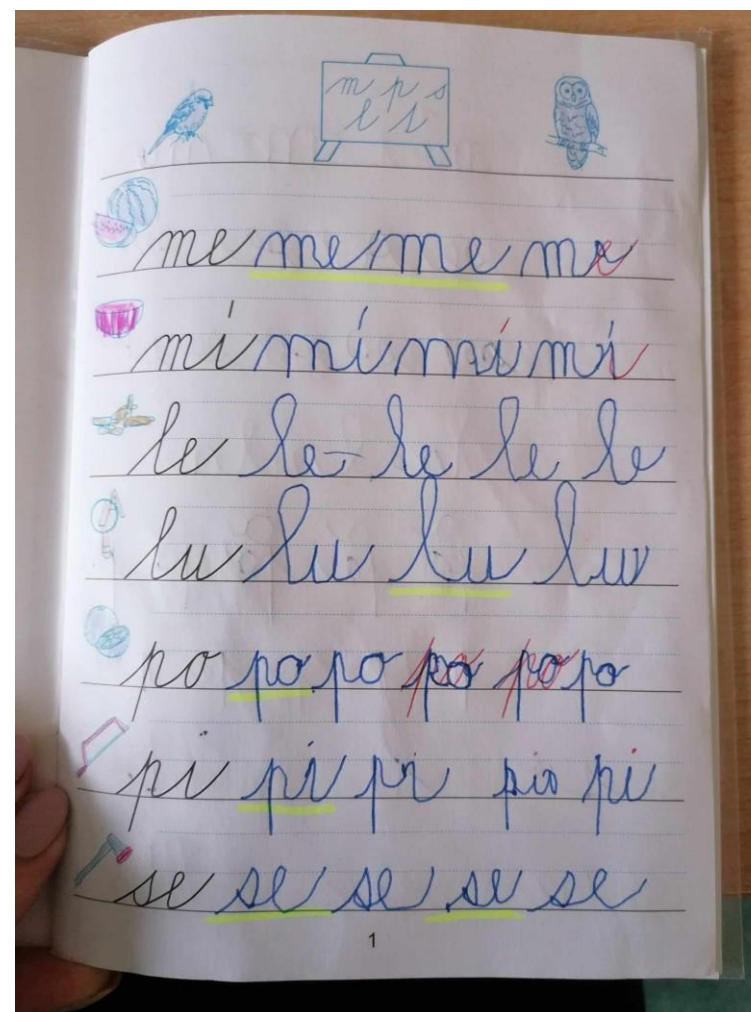 m p s
me me me me
mí mí mí mí
le le le le le
lu lu lu lu
po po po po po po
pi pi pi pi pi
se se se se se
1